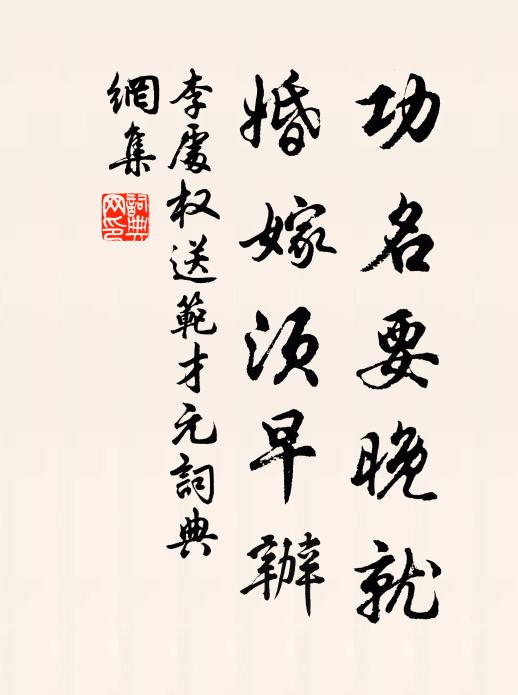 功名要晚就
婚嫁須早辦
李處权送範才元詞典
網集
詞典
网印